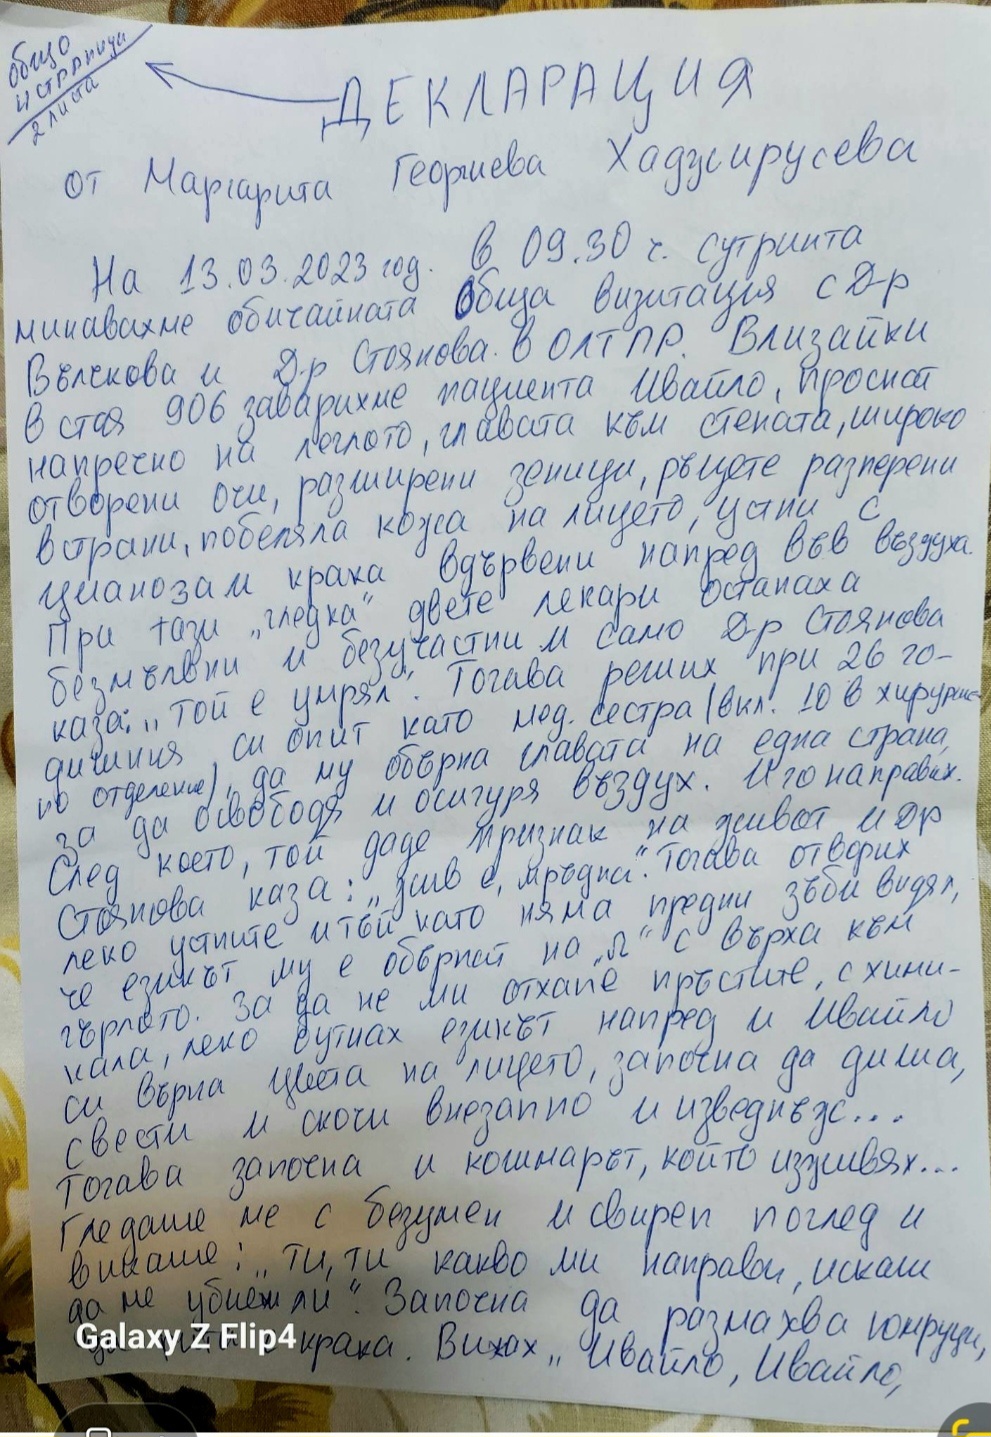 общо
4 страници
2 листа
ДЕКЛАРАЦИЯ
от Маргарита Георгиева Хаджирусева
На 13.03.2023 год. в 09.30 ч. сутринта
минавахме обичайната обща визитация с Д-р
Вълчкова и Д-р Стоянова. в ОЛТПР. Влизайки
в стая 906 заварихме пациента Ивайло, проснат
напречно на леглото, главата към стената, широко
отворени очи, разширени зеници, ръцете разперени
встрани, побеляла кожа на лицето, устни с
цианоза и крака вдървени напред във въздуха.
При тази „гледка" двете лекари останаха
безмълвни и безучастни и само Д-р Стоянова
каза: „Той е умрял". Тогава реших при 26 го-
дишния си опит като мед. сестра (вкл. 10 в хирургич-
но отделение), да му обърна главата на една страна,
за да освободя и осигуря въздух. И го направих.
След което, той даде признак на живот и Д-р
Стоянова каза: „жив е, мръдна". Тогава отворих
леко устните и тъй като няма предни зъби видял,
че езикът му е обърнат на „Л" с върха към
гърлото. За да не ми отхапе пръстите, с хими-
кала, леко бутнах езикът напред и Ивайло
си върна цвета на лицето, започна да диша,
свести и скочи внезапно и изведнъж...
Тогава започна и кошмарът, който изживях...
Гледаше ме с безумен и свиреп поглед и
викаше: „Ти, ти какво ми направи, искаш
да ме убиеш ли". Започна да размахва юмруци,
крака. Виках „Ивайло, Ивайло,
Galaxy Z Flip4